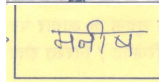 मनीष